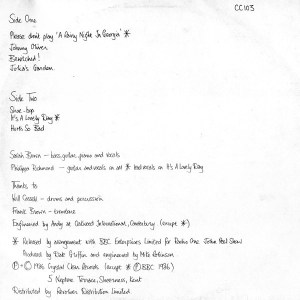 CC103
Side One
Please don't play 'A Rainy Night In Georgia' *
Johnny Oliver
Bewitched!
John's Garden.
Side Two
Shoe-bop
It's A Lonely Day *
Hurts So Bad
Sarah Brown – bass, guitar, piano and vocals
Philippa Richmond – guitar and vocals on all * lead vocals on It's A Lonely Day
Thanks to
Will Cassell – drums and percussion
Frank Brown – trombone
Engineered by Andy at Oakwood International, Canterbury (except *)
* Released by arrangement with BBC Enterprises Limited for Radio One John Peel Show
Produced by Dale Griffin and engineered by Mike Robinson
Ⓟ + © 1986 Crystal Clear Records (except * Ⓟ BBC 1986)
5 Neptune Terrace, Sheerness, Kent
Distributed by Revolver Distribution Limited